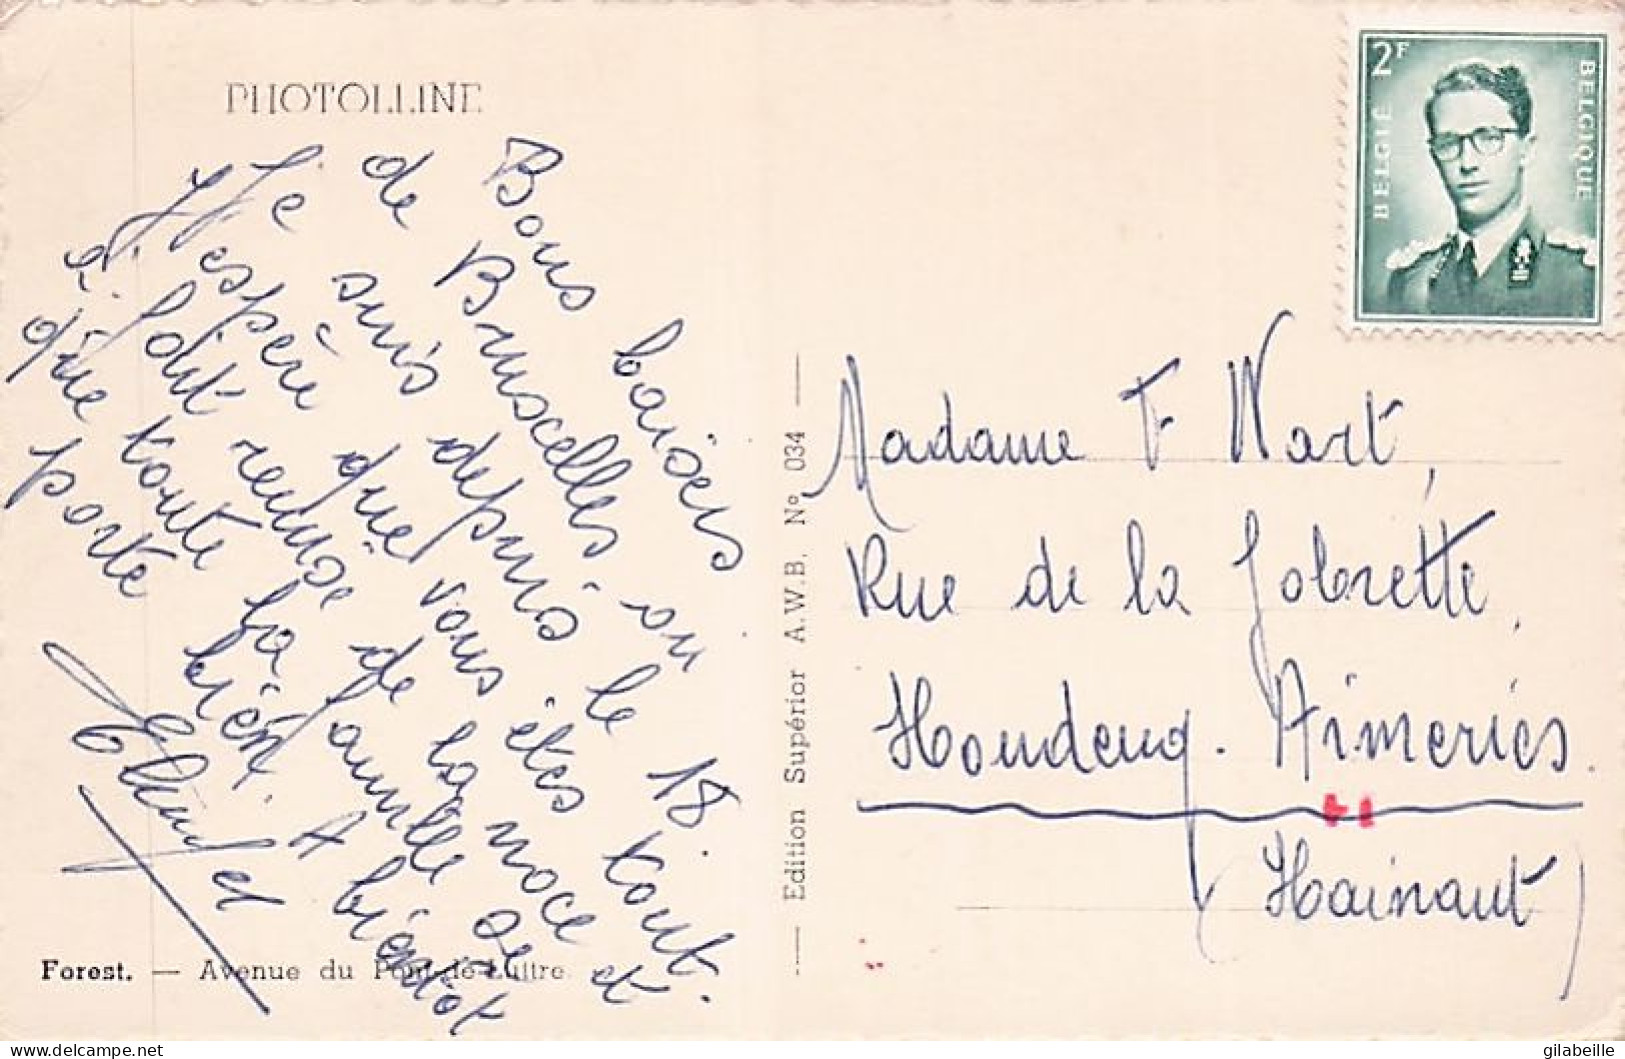 PHOTOLLINE
Bons baisers
de Bruxcelles où
Je suis depuis le 18.
J'espère que vous êtes tout
à fait remise de la noce et
que toute la famille se
porte bien. A bientôt
Forest. — Avenue du Pont-de-Luttre
Edition Supérior A.W.B. N° 034
2F
BELGIË
BELGIQUE
Madame F Wart,
Rue de la
Houdeng. Aimeries.
(Hainaut)
delcampe.net
gilabeille